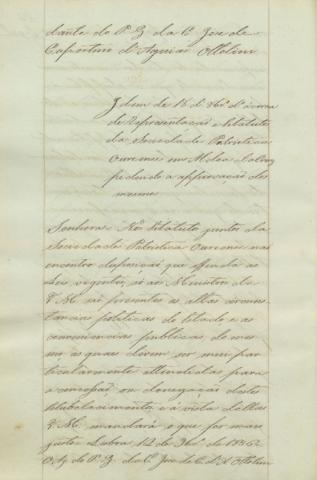 dante do P. G. da C. José de
Cupertino d'Aguiar Ottolini
Idem de 18 de 9br.º d'ácerca
de Representação e Estatutos
da Sociedade Patriotica
Ouremense em Aldea da Cruz
pedindo a approvação dos
mesmos
Senhora. Nos Estatutos juntos da
Sociedade Patriotica Ouremense não
encontro disposição que offenda as
Leis vigentes, só ao Ministro de
V. M. são presentes as altas circums-
tancias politicas do Estado e as
conveniencias publicas, do mes-
mo, ás quaes devem ser mui par-
ticularmente attendidas para
a concessão, ou denegação destes
Estabelecimentos, e á vista dellas
V. M. mandará o que for mais
justo. Lisboa 12 de 9br.º de 1836.
O Aj. do P. G. da C. José de C. d'A. Ottolini